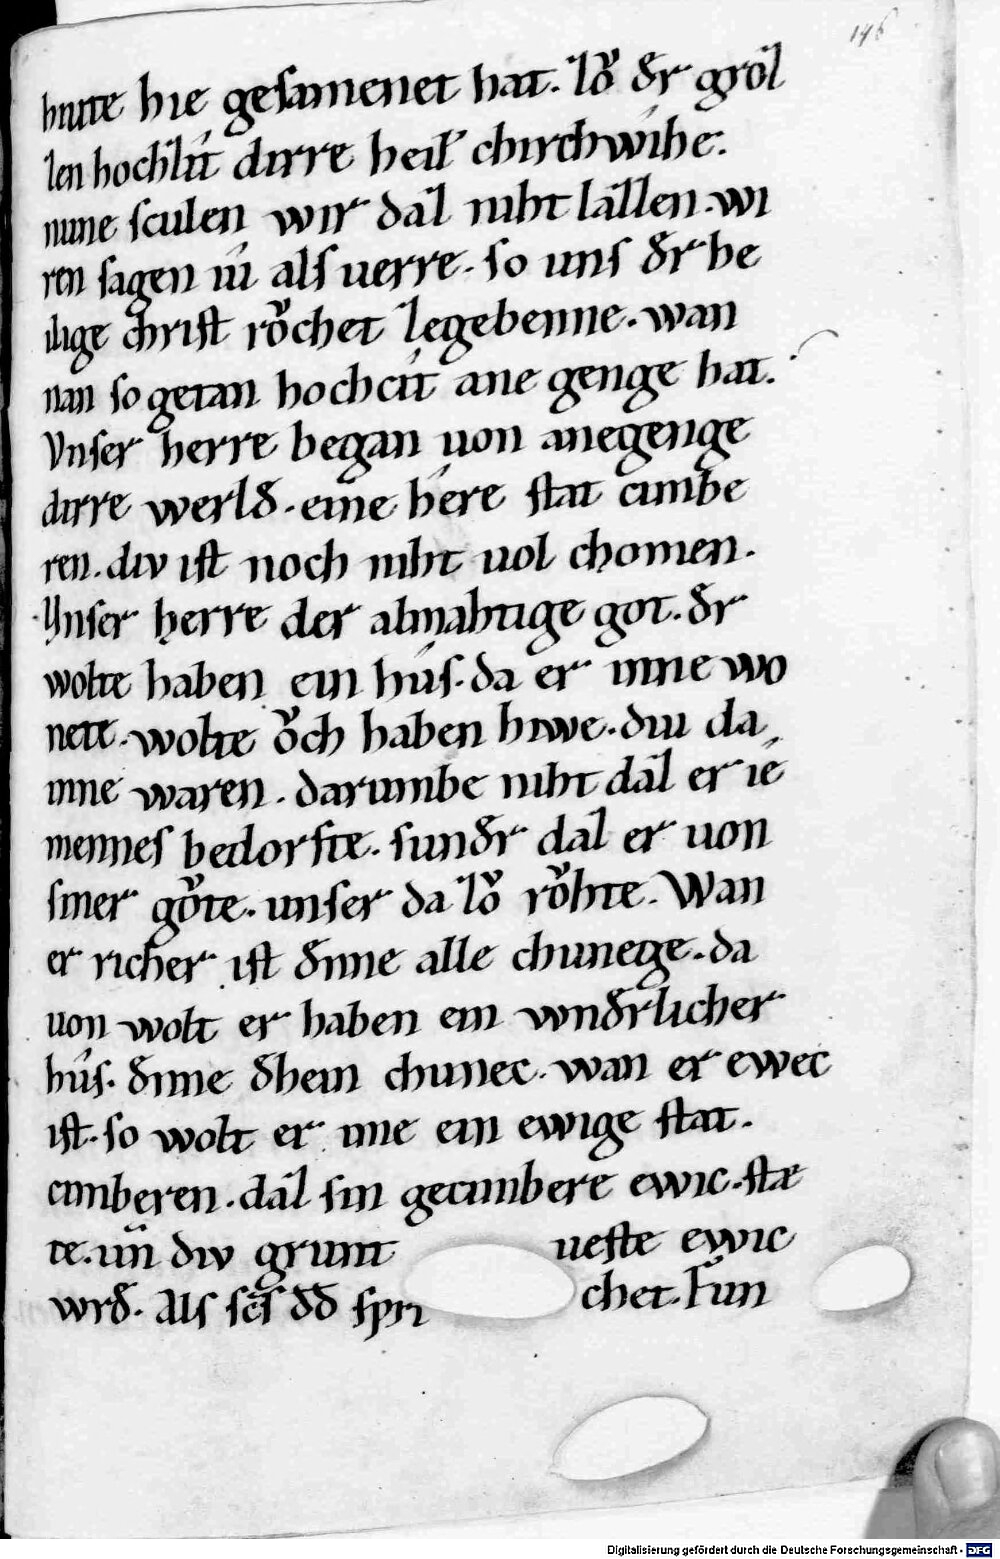 146
hiute hie gesamenet hat. zoͮ dˢ groz
zen hochzit dirre heiligˢ chirchwihe.
nune sculen wir daz niht lazzen. wi
ren sagen iu als uerre. so uns dˢ he
ilige christ roͮchet zegebenne. wan
nan so getan hochcit ane genge hat.
Vnser herre began uon anegenge
dirre werlđ. eine here stat cimbe
ren. div ist noch niht uol chomen.
Vnser herre der almahtige got. dˢ
wolte haben ein hus. da er inne wo
nete. wolte oͮch haben hiwe. diu da
inne waren. darumbe niht daz er ie
mennes bedorfte. sundˢ daz er uon
siner goͮte. unser da zoͮ roͮhte. Wan
er richer ist đnne alle chunege. da
uon wolt er haben ein wndˢlicher
hus. đnne đhein chunec. wan er ewec
ist. so wolt er ime ein ewige stat.
cimberen. daz sin gecimbere ewic. stæ
te. uñ div grunt ueste ewic
wrđ. Als sc̄s đđ spri chet. Fun
Digitalisierung gefördert durch die Deutsche Forschungsgemeinschaft - DFG